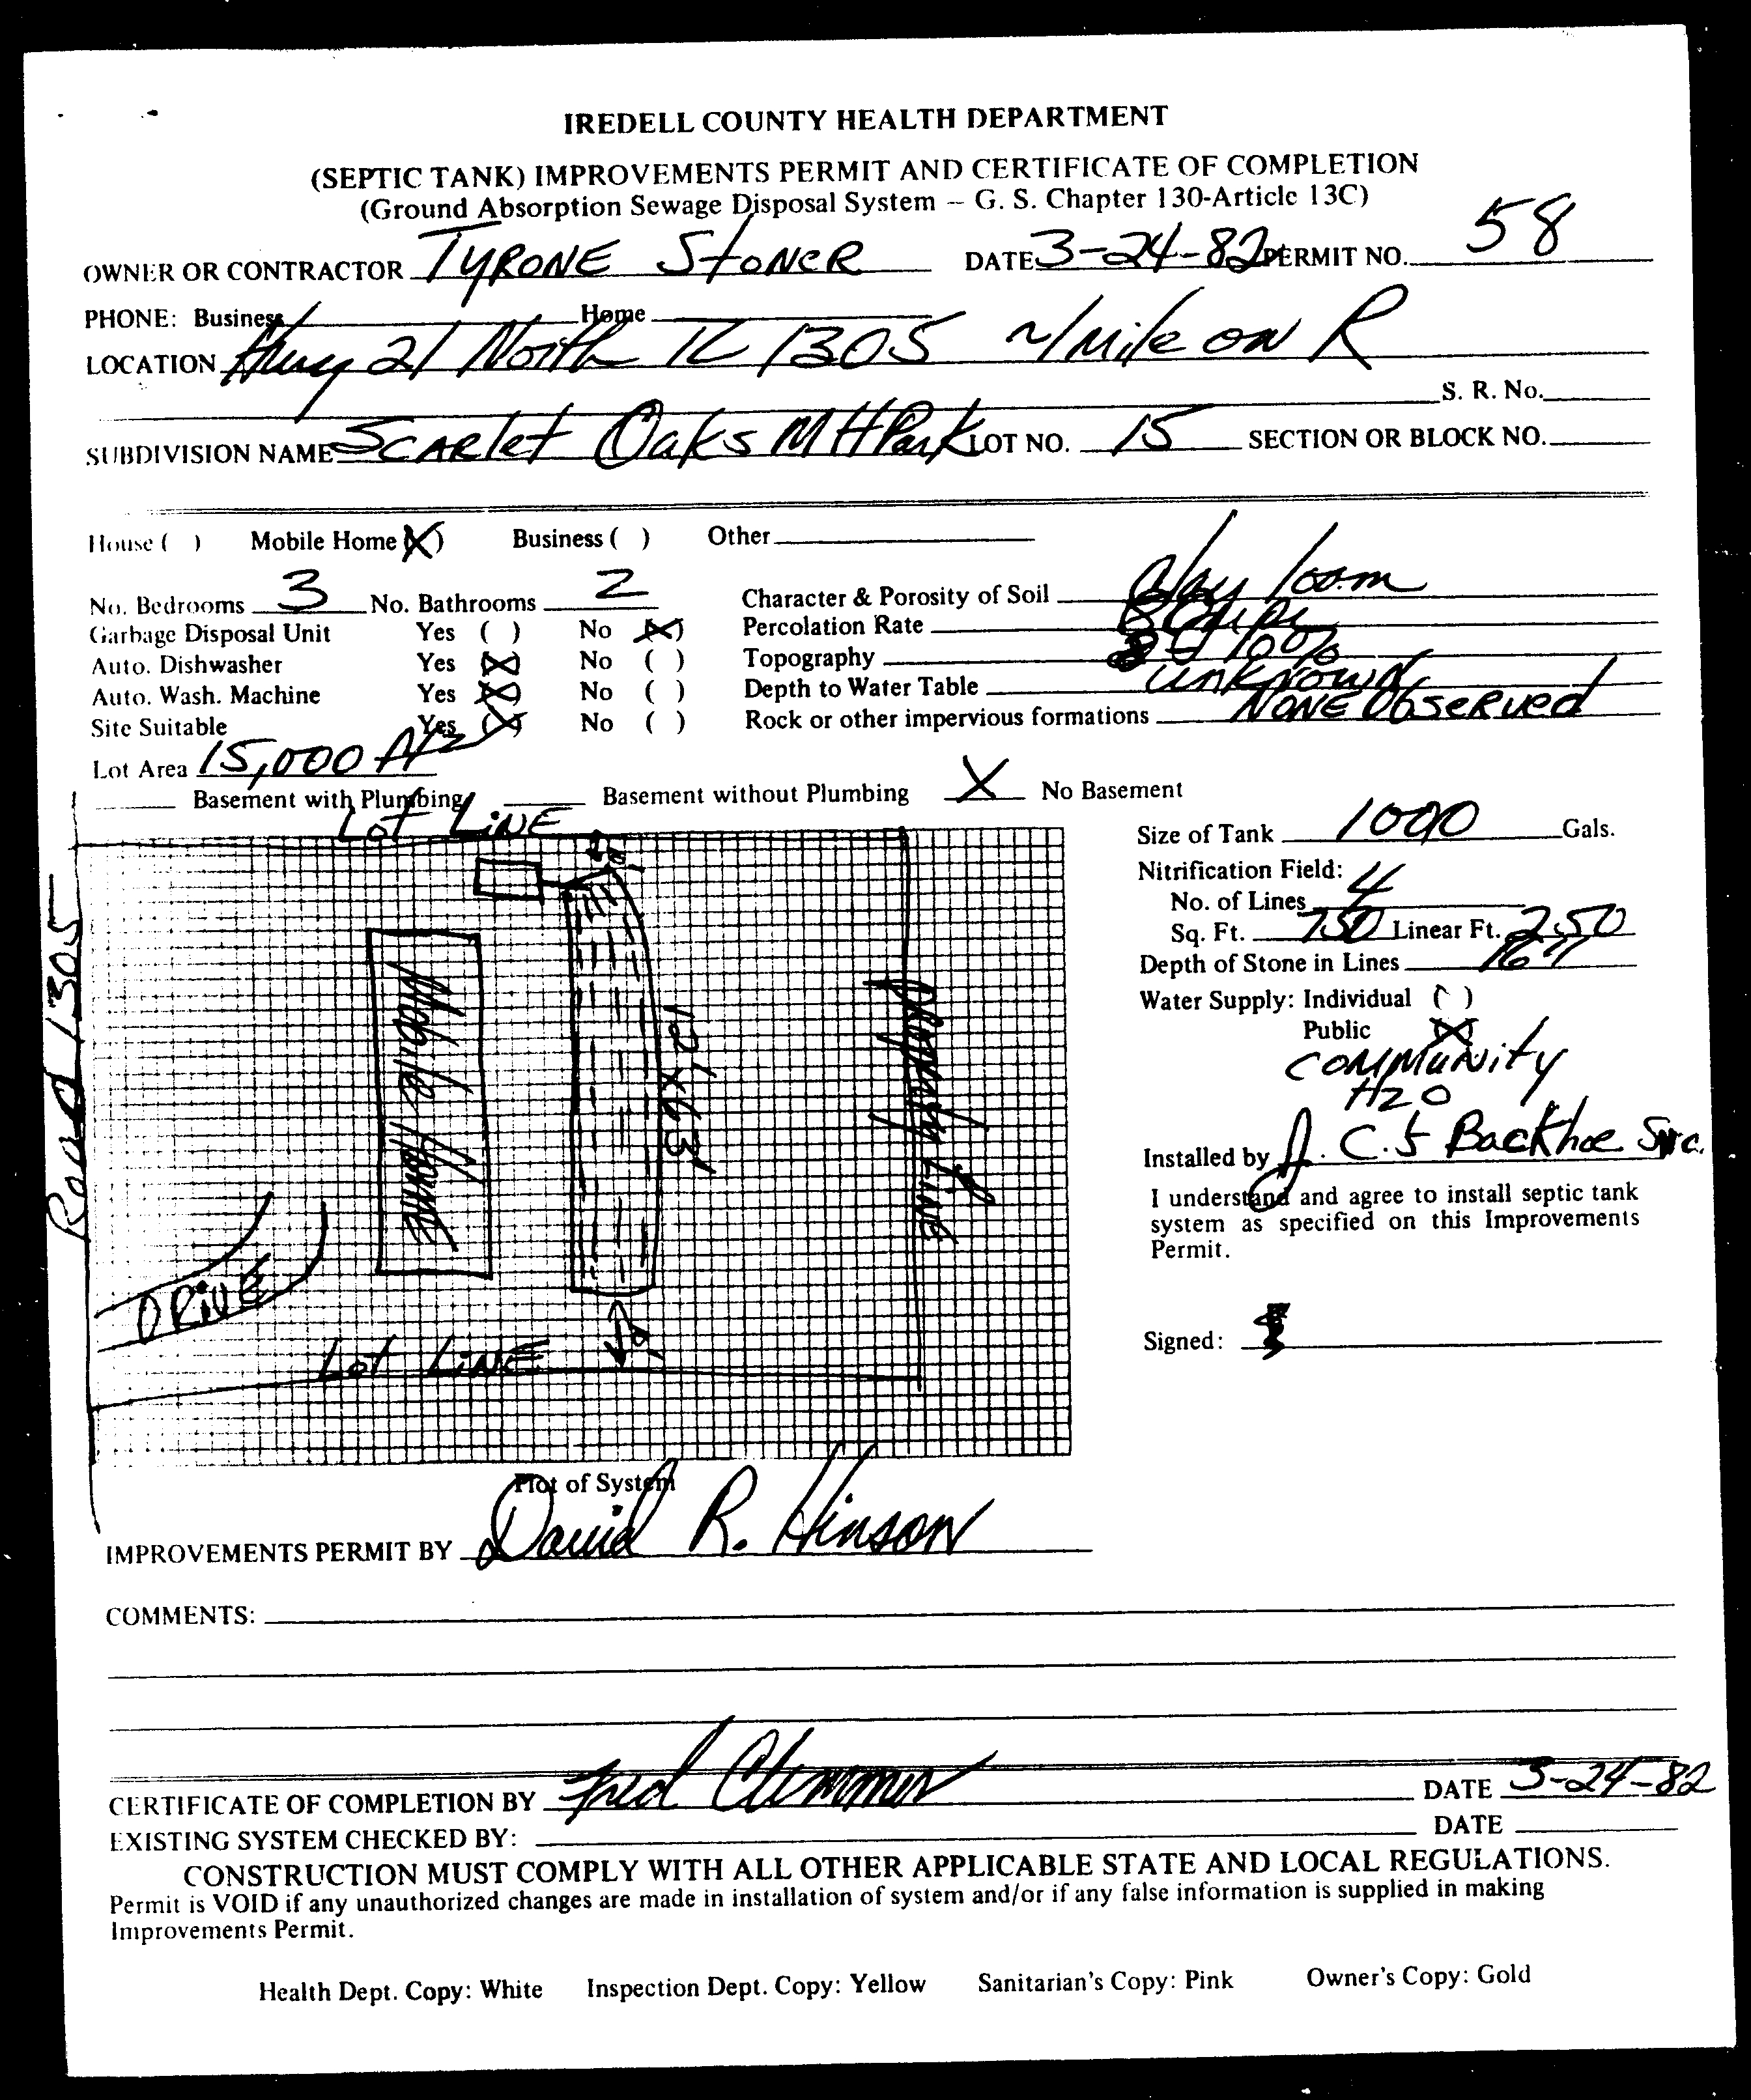 IREDELL COUNTY HEALTH DEPARTMENT
(SEPTIC TANK) IMPROVEMENTS PERMIT AND CERTIFICATE OF COMPLETION
(Ground Absorption Sewage Disposal System – G. S. Chapter 130-Article 13C)
OWNER OR CONTRACTOR TYRONE StONER DATE 3-24-82 PERMIT NO. 58
PHONE: Business Home
LOCATION Hwy 21 North 1305 ~1 mile on R
S. R. No.
SUBDIVISION NAME SCARlet Oaks MH Park LOT NO. 15 SECTION OR BLOCK NO.
House ( ) Mobile Home (X) Business ( ) Other
No. Bedrooms 3 No. Bathrooms 2 Character & Porosity of Soil Clay loam
Garbage Disposal Unit Yes ( ) No (X) Percolation Rate
Auto. Dishwasher Yes (X) No ( ) Topography 10%
Auto. Wash. Machine Yes (X) No ( ) Depth to Water Table unknown
Site Suitable Yes (X) No ( ) Rock or other impervious formations NONE Observed
Lot Area 15,000 ft2
Basement with Plumbing Basement without Plumbing X No Basement
Lot LiNE
Road 1305
Mobile Home
12' x 63'
Property Line
DRiVE
Lot LiNE
Plot of System
Size of Tank 1000 Gals.
Nitrification Field:
No. of Lines 4
Sq. Ft. 750 Linear Ft. 250
Depth of Stone in Lines 16"
Water Supply: Individual ( )
Public (X)
COMMUNity
H2O
Installed by J. C.'s Backhoe Svc.
I understand and agree to install septic tank
system as specified on this Improvements
Permit.
Signed:
IMPROVEMENTS PERMIT BY David R. Hinson
COMMENTS:
CERTIFICATE OF COMPLETION BY Fred Clemmer DATE 3-24-82
EXISTING SYSTEM CHECKED BY: DATE
CONSTRUCTION MUST COMPLY WITH ALL OTHER APPLICABLE STATE AND LOCAL REGULATIONS.
Permit is VOID if any unauthorized changes are made in installation of system and/or if any false information is supplied in making
Improvements Permit.
Health Dept. Copy: White Inspection Dept. Copy: Yellow Sanitarian's Copy: Pink Owner's Copy: Gold